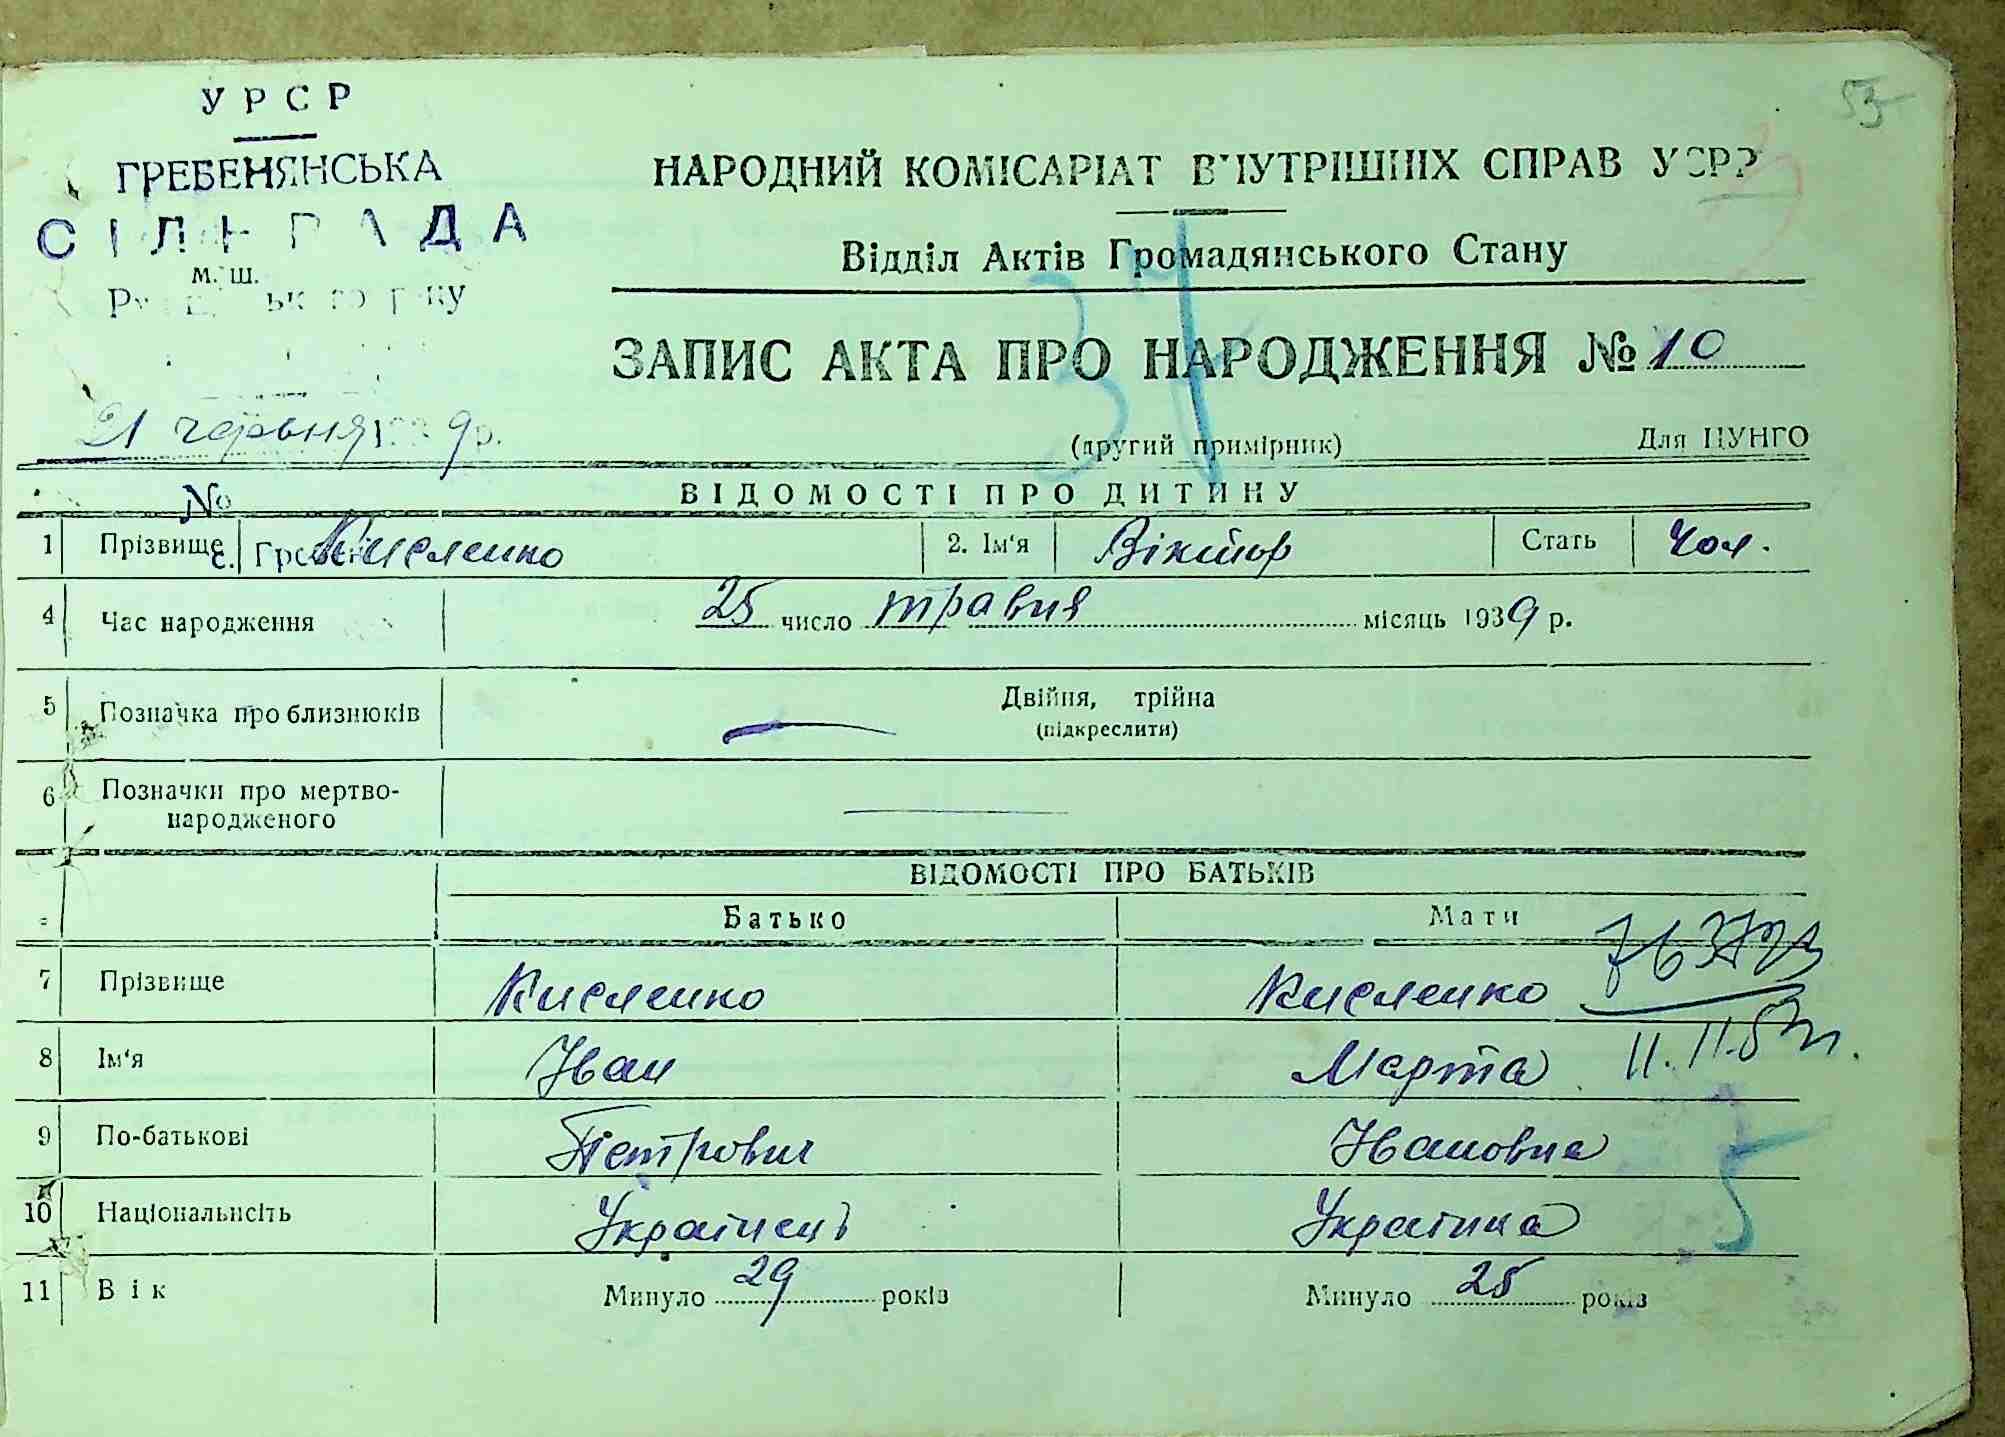 УРСР
53
ГРЕБЕНЯНСЬКА
СІЛЬРАДА
м. ш.
НАРОДНИЙ КОМІСАРІАТ ВНУТРІШНІХ СПРАВ УСРР
Відділ Актів Громадянського Стану
37
ЗАПИС АКТА ПРО НАРОДЖЕННЯ № 10
21 червня 1939 р.
(другий примірник) Для ЦУНГО
№
ВІДОМОСТІ ПРО ДИТИНУ
1 Прізвище Кисленко 2. Ім'я Віктор Стать Чол.
с. Гребені
4 Час народження 25 число травня місяць 1939 р.
5 Позначка про близнюків Двійня, трійна
(підкреслити)
6 Позначки про мертво-
народженого
ВІДОМОСТІ ПРО БАТЬКІВ
Батько Мати
7 Прізвище Кисленко Кисленко
8 Ім'я Іван Марта
9 По-батькові Петрович Івановна
5
10 Національність Українець Українка
11 Вік Минуло 29 років Минуло 25 років